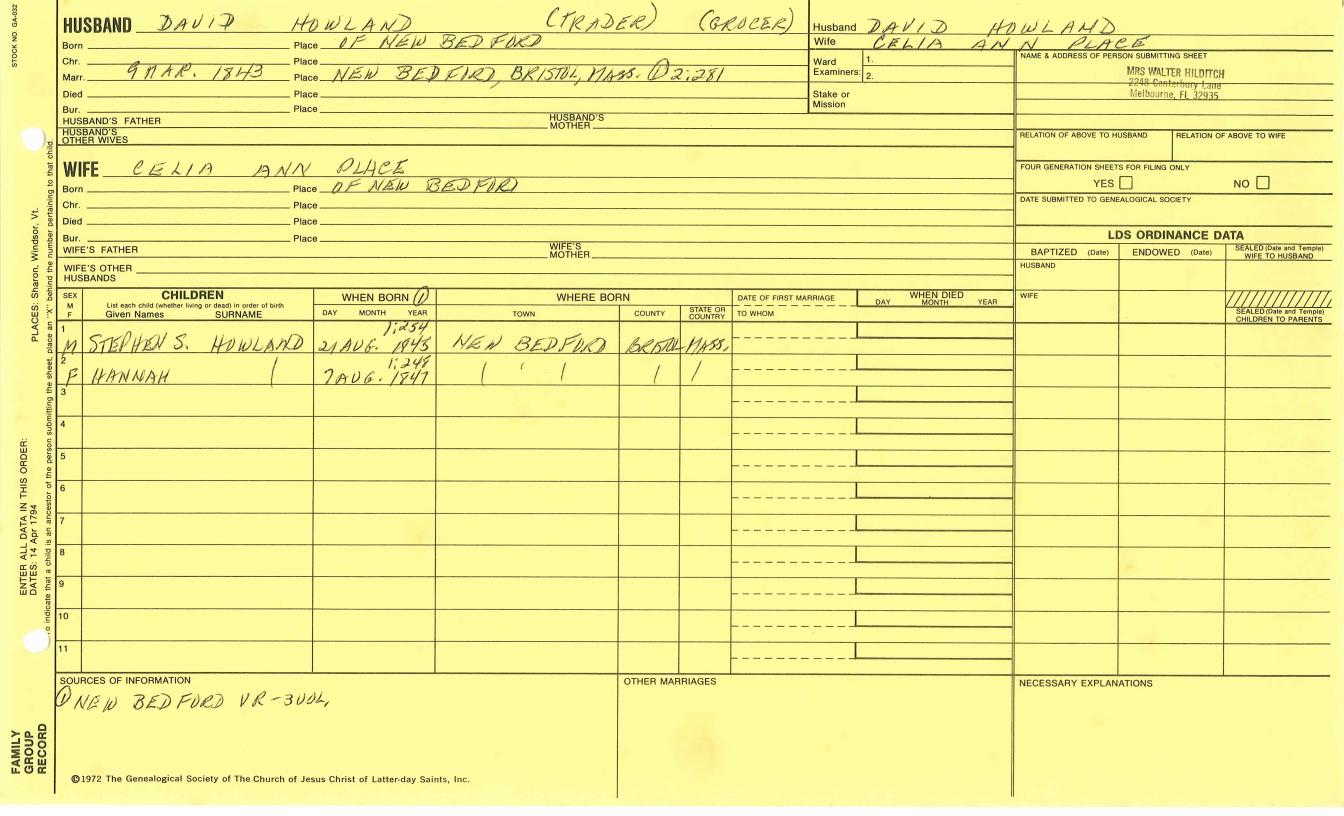 STOCK NO. GA-032
HUSBAND DAVID HOWLAND (TRADER) (GROCER)
Born Place OF NEW BEDFORD
Chr. Place
Marr. 9 MAR. 1843 Place NEW BEDFORD, BRISTOL, MASS. ① 2:281
Died Place
Bur. Place
HUSBAND'S FATHER HUSBAND'S MOTHER
HUSBAND'S OTHER WIVES
Husband DAVID HOWLAND
Wife CELIA ANN PLACE
Ward Examiners: 1.
2.
Stake or Mission
NAME & ADDRESS OF PERSON SUBMITTING SHEET
MRS WALTER HILDITCH
2248 Canterbury Lane
Melbourne, FL 32935
RELATION OF ABOVE TO HUSBAND RELATION OF ABOVE TO WIFE
FOUR GENERATION SHEETS FOR FILING ONLY
YES NO
DATE SUBMITTED TO GENEALOGICAL SOCIETY
WIFE CELIA ANN PLACE
Born Place OF NEW BEDFORD
Chr. Place
Died Place
Bur. Place
WIFE'S FATHER WIFE'S MOTHER
WIFE'S OTHER HUSBANDS
LDS ORDINANCE DATA
BAPTIZED (Date) ENDOWED (Date) SEALED (Date and Temple) WIFE TO HUSBAND
HUSBAND
WIFE
SEALED (Date and Temple) CHILDREN TO PARENTS
SEX M F CHILDREN WHEN BORN ① WHERE BORN DATE OF FIRST MARRIAGE WHEN DIED
List each child (whether living or dead) in order of birth
Given Names SURNAME DAY MONTH YEAR TOWN COUNTY STATE OR COUNTRY TO WHOM DAY MONTH YEAR
1 1:254
M STEPHEN S. HOWLAND 21 AUG. 1845 NEW BEDFORD BRISTOL MASS.
2 1:248
F HANNAH 7 AUG. 1847
3
4
5
6
7
8
9
10
11
SOURCES OF INFORMATION OTHER MARRIAGES NECESSARY EXPLANATIONS
① NEW BEDFORD VR-3VOL,
©1972 The Genealogical Society of The Church of Jesus Christ of Latter-day Saints, Inc.
FAMILY GROUP RECORD
ENTER ALL DATA IN THIS ORDER:
DATES: 14 Apr 1794 PLACES: Sharon, Windsor, Vt.
indicate that a child is an ancestor of the person submitting the sheet, place an "X" behind the number pertaining to that child.